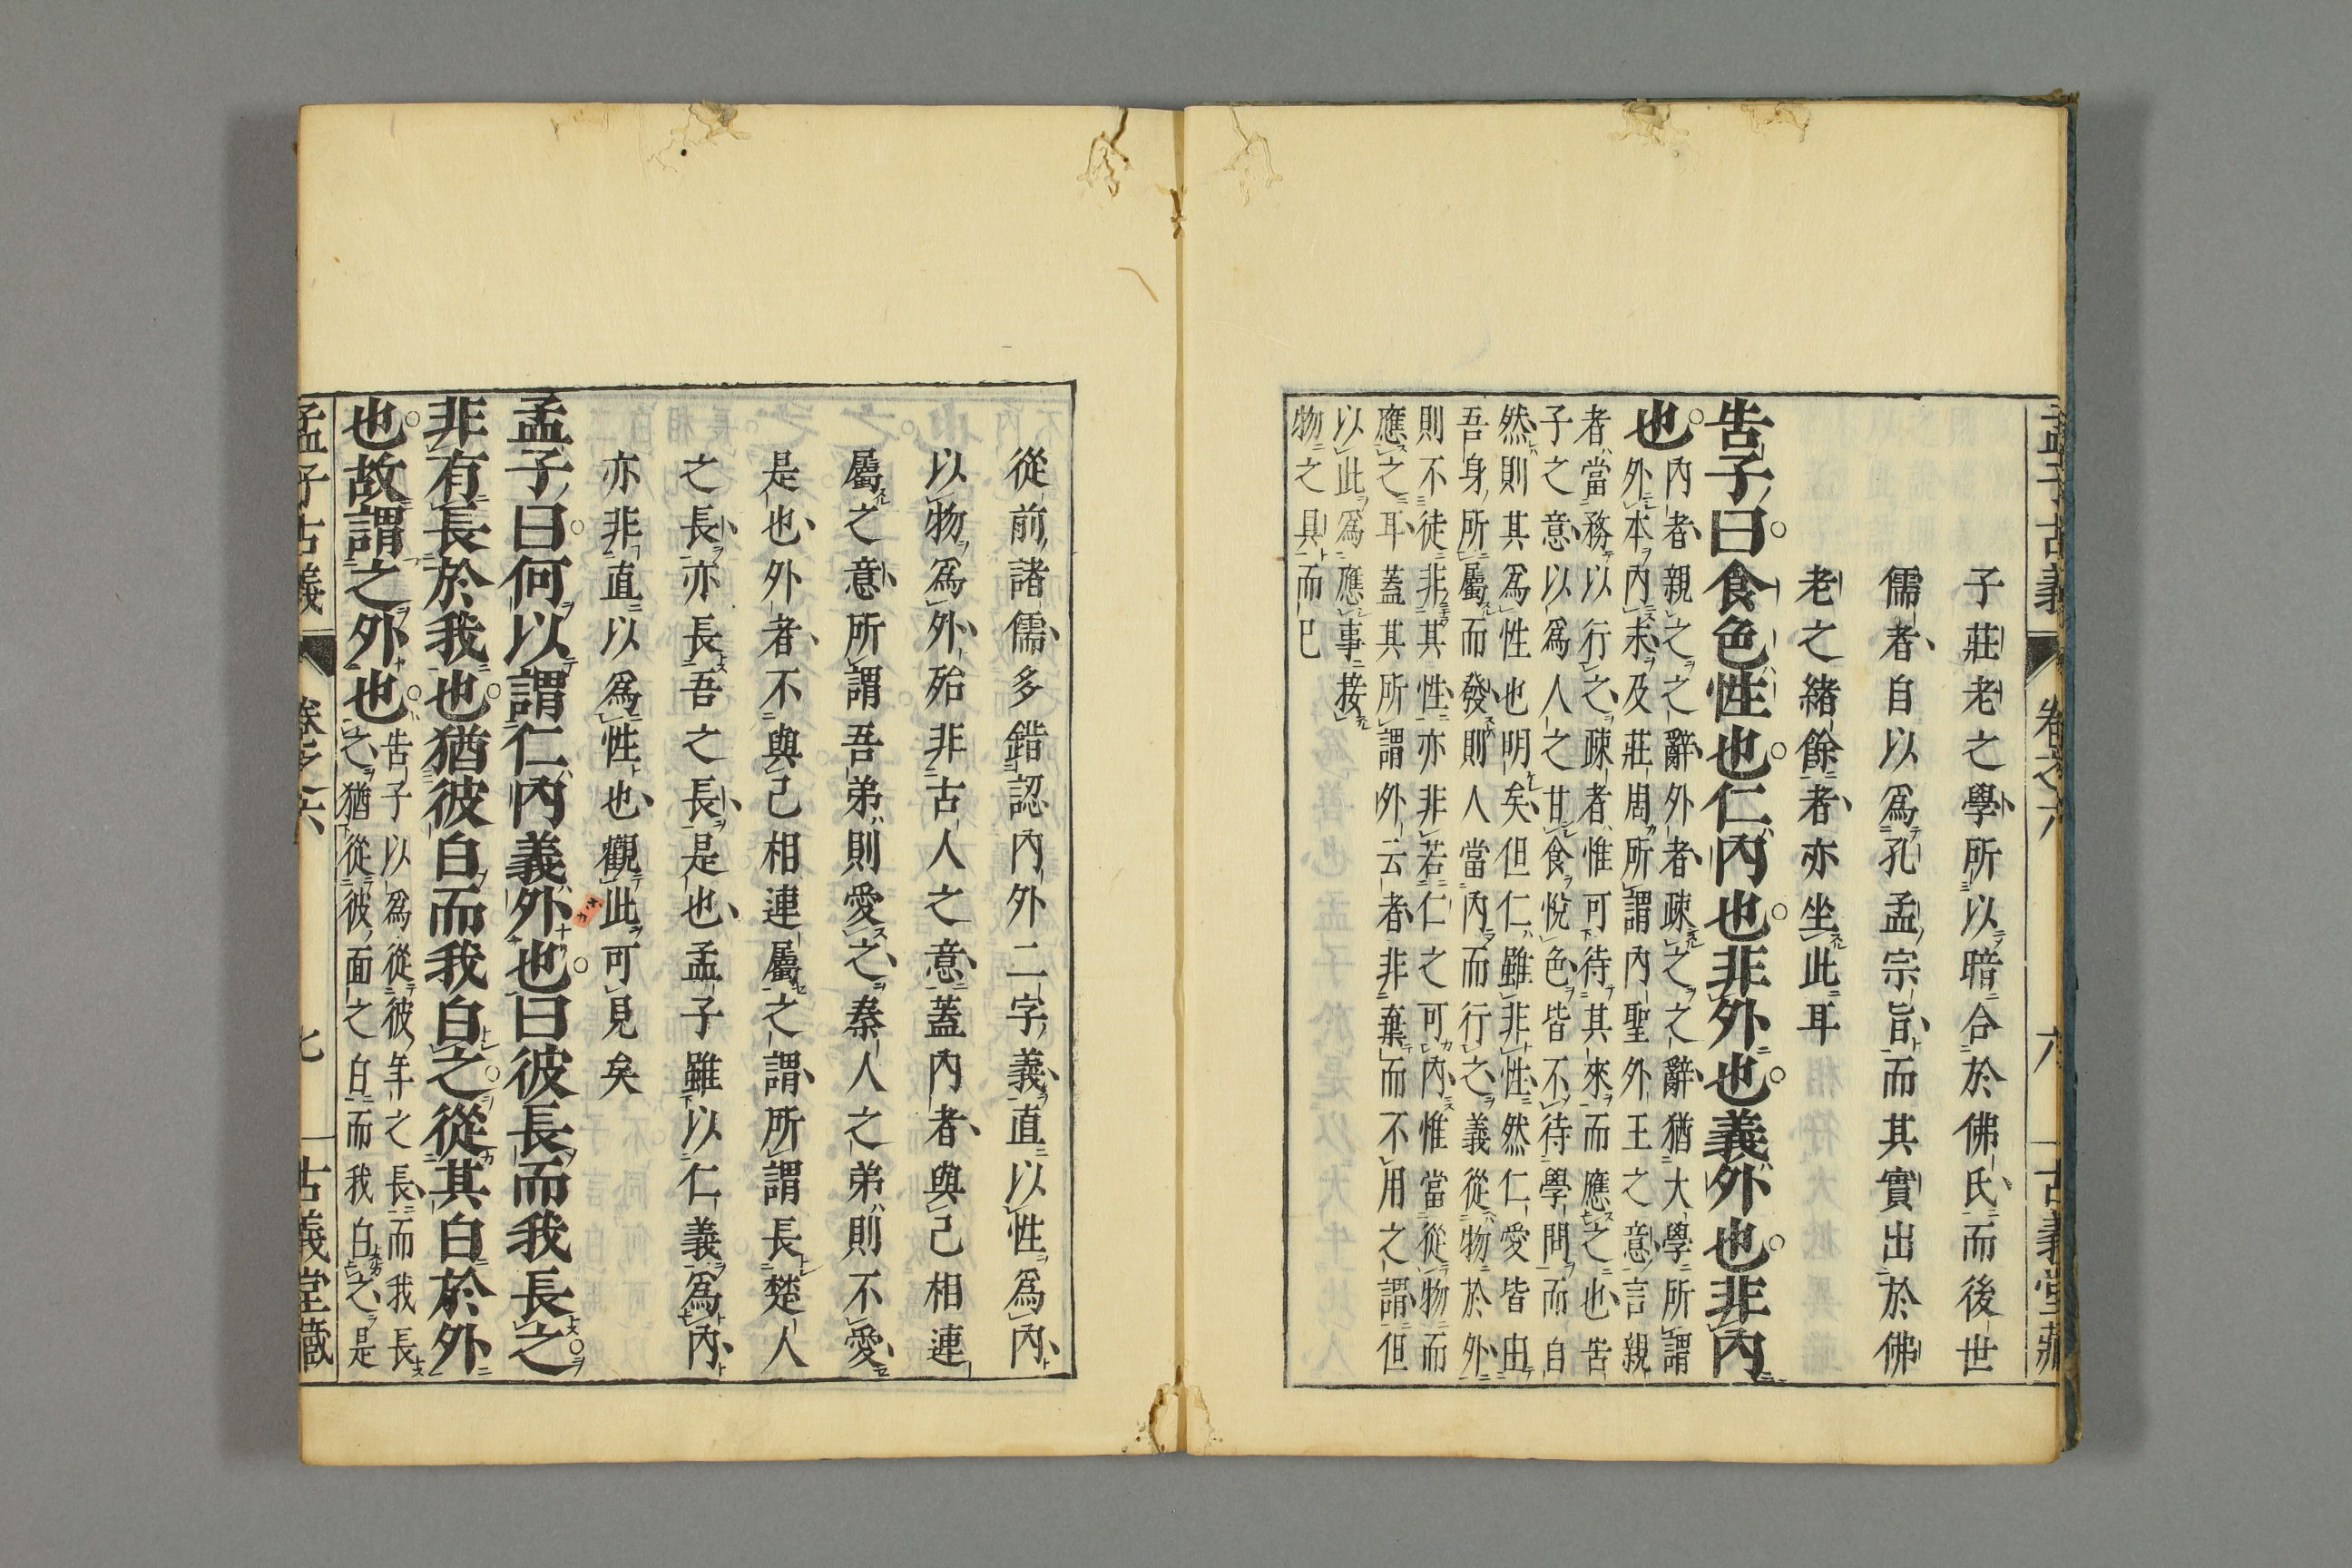 孟子古義 卷之六 六 古義堂藏
子莊老之學所以暗合於佛氏而後世
儒者自以爲孔孟宗旨而其實出於佛
老之緒餘者亦坐此耳
告子曰食色性也仁內也非外也義外也非內
也
內者親之之辭外者疎之之辭猶大學所謂
外本內末及莊周所謂內聖外王之意言親
者當務以行之疎者惟可待其來而應之也告
子之意以爲人之甘食悅色皆不待學問而自
然則其爲性也明矣但仁雖非性然仁愛皆由
吾身所屬而發則人當內而行之義從物於外
則不徒非其性亦非若仁之可內惟當從物而
應之耳蓋其所謂外云者非棄而不用之謂但
以此爲應事接
物之具而已
從前諸儒多錯認內外二字義直以性爲內
以物爲外殆非古人之意蓋內者與己相連
屬之意所謂吾弟則愛之秦人之弟則不愛
是也外者不與己相連屬之謂所謂長楚人
之長亦長吾之長是也孟子雖以仁義爲內
亦非直以爲性也觀此可見矣
孟子曰何以謂仁內義外也曰彼長而我長之
非有長於我也猶彼白而我白之從其白於外
也故謂之外也
告子以爲從彼年之長而我長
之猶從彼面之白而我白之是
孟子古義 卷之六 七 古義堂藏